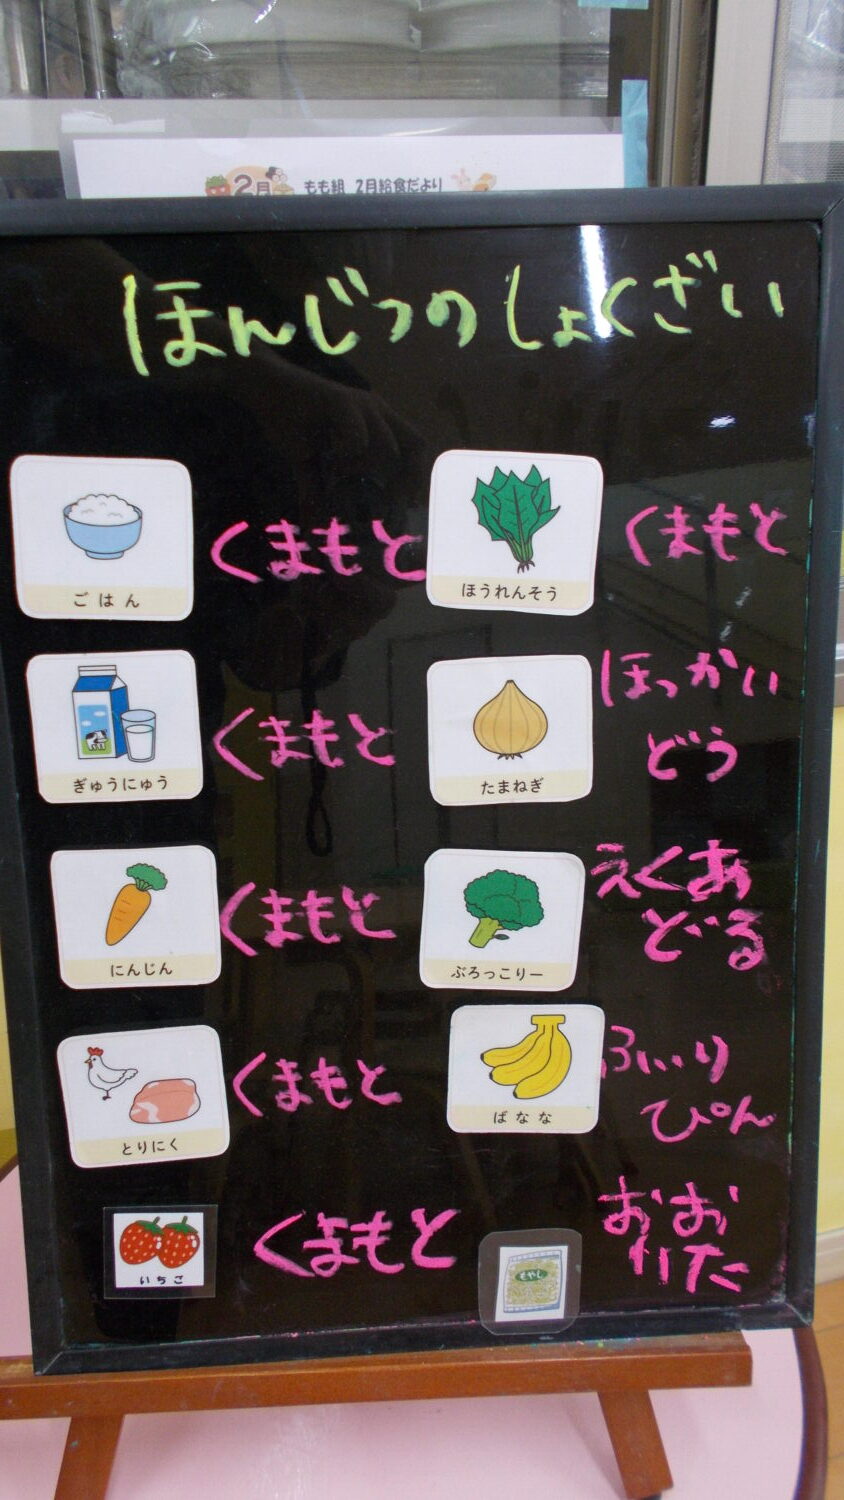 2月 もも組 2月給食だより
ほんじつのしょくざい
ごはん くまもと
ほうれんそう くまもと
ぎゅうにゅう くまもと
たまねぎ ほっかい
どう
にんじん くまもと
ぶろっこりー えくあ
どる
とりにく くまもと
ばなな ふぃり
ぴん
いちご くまもと
もやし おお
いた